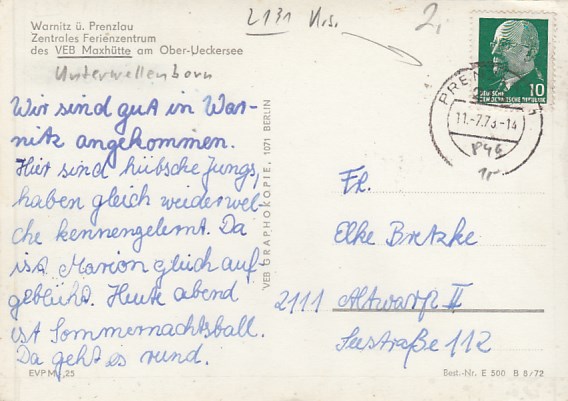 Warnitz ü. Prenzlau
Zentrales Ferienzentrum
des VEB Maxhütte am Ober-Ueckersee
Unterwellenborn
2131 U.S.
2,
Wir sind gut in War-
nitz angekommen.
Hier sind hübsche Jungs,
haben gleich weider wel-
che kennengelernt. Da
ist Marion gleich auf-
geblüht. Heute abend
ist Sommernachtsball.
Da geht es rund.
EVP M -,25
VEB GRAPHOKOPIE, 1071 BERLIN
10
DEUTSCHE
DEMOKRATISCHE REPUBLIK
PREN
11.-7.73-14
Elke Bretzke
2111 Altwarp II
Seestraße 112
Best.-Nr. E 500 B 8/72